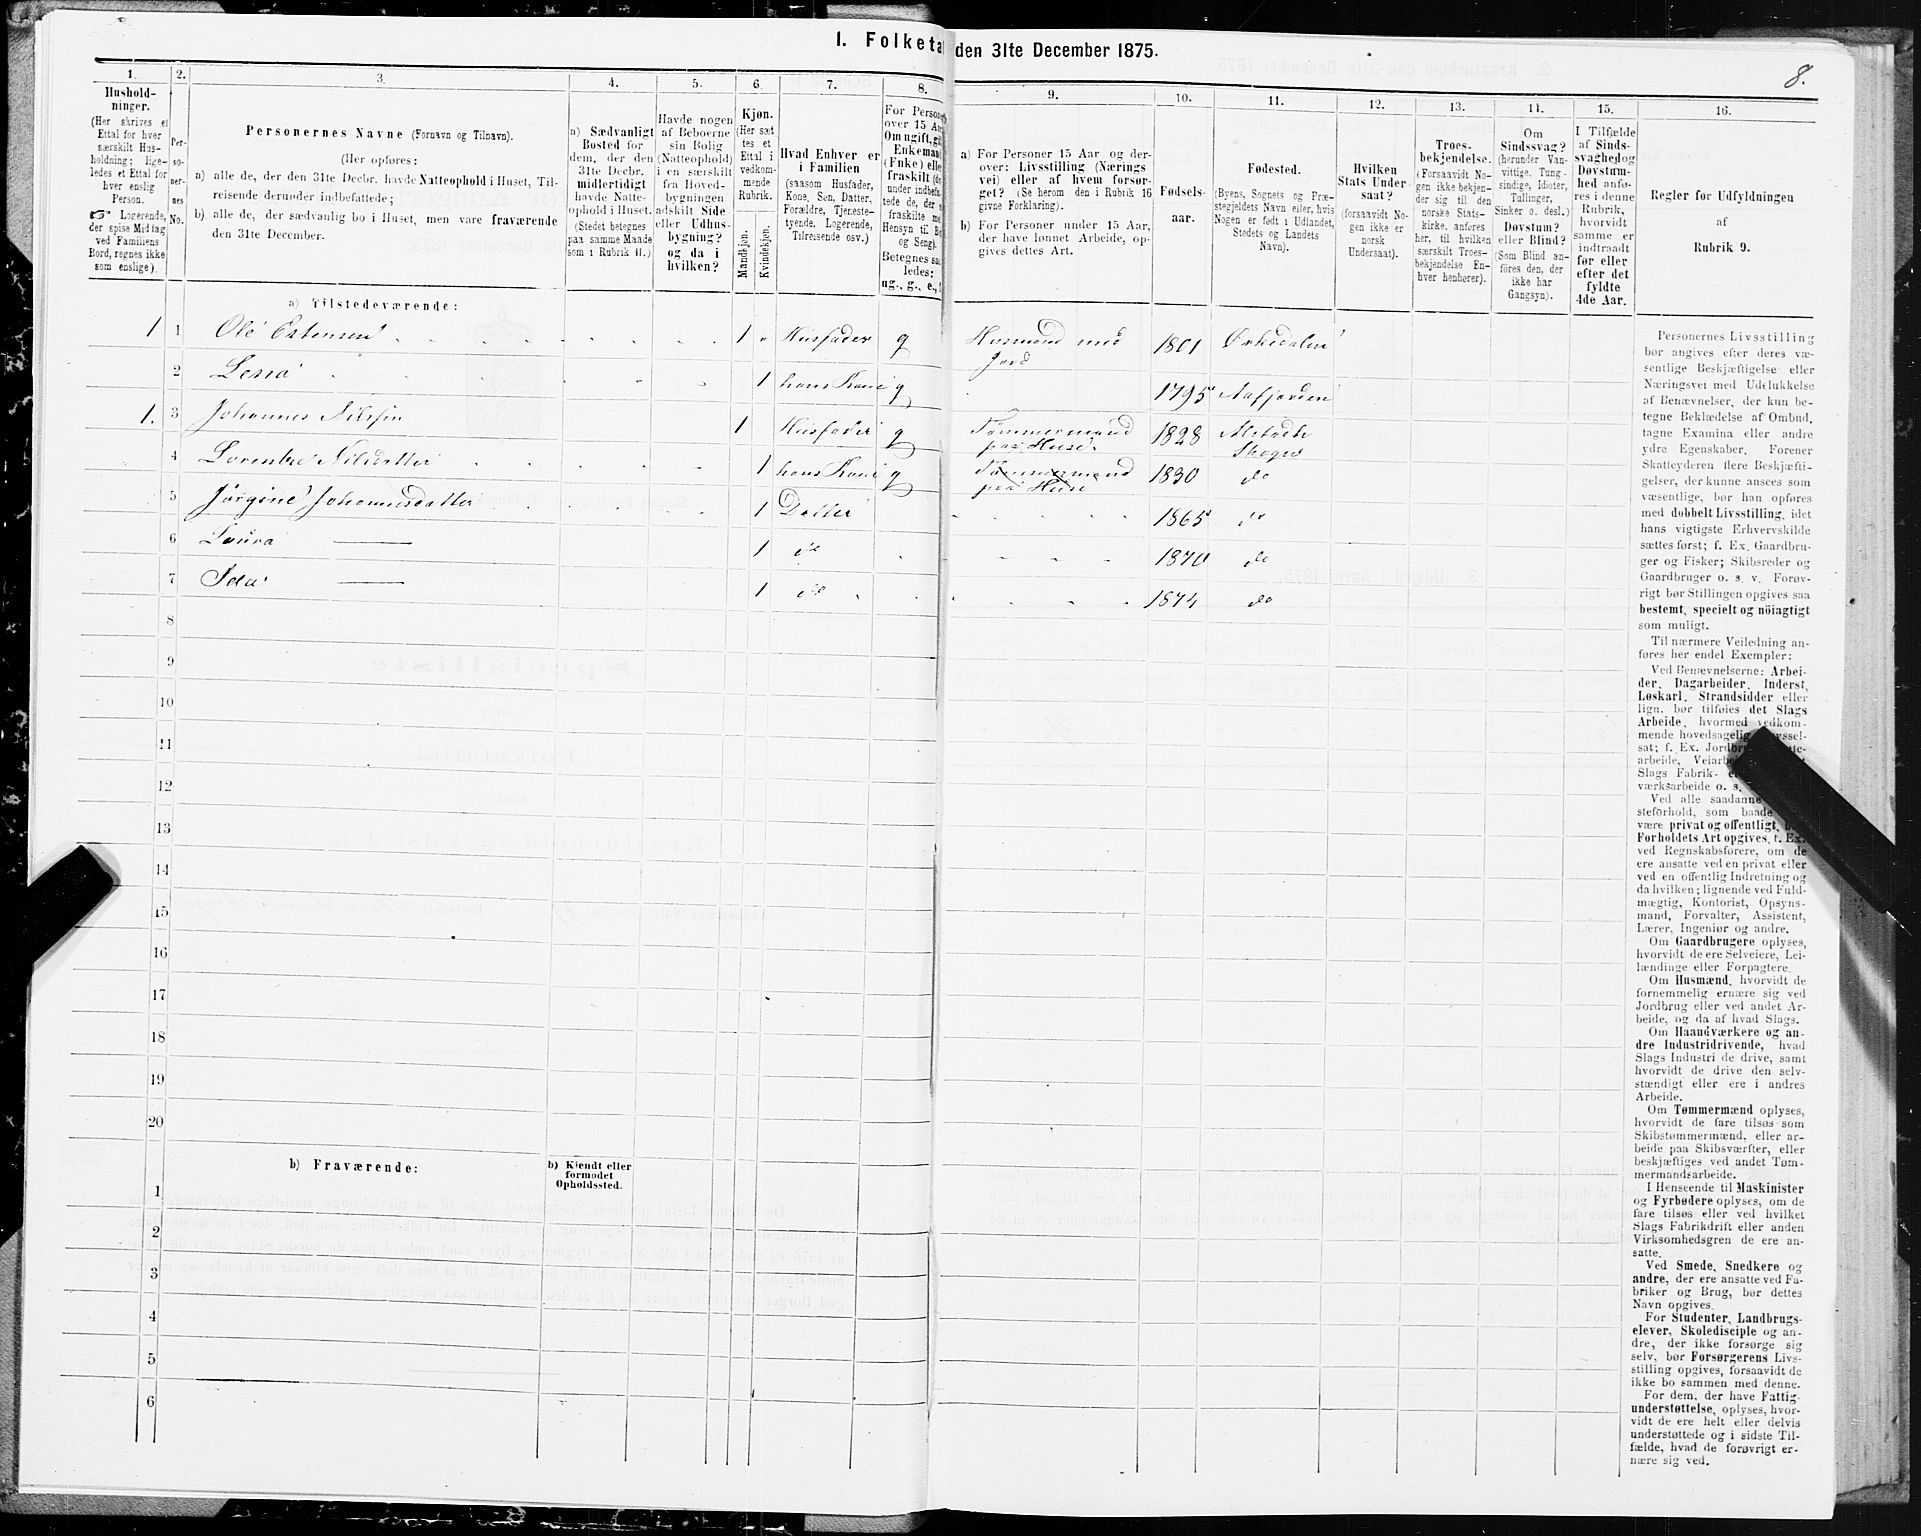 1. Folketal den 31te December 1875.
8.
1.
Hushold-
ninger.
(Her skrives et
Ettal for hver
særskilt Hus-
holdning; lige-
ledes et Ettal for
hver enslig
Person.
☞ Logerende,
der spise Middag
ved Familiens
Bord, regnes ikke
som enslige).
2.
Per-
so-
ner-
nes
No.
3.
Personernes Navne (Fornavn og Tilnavn).
(Her opføres:
a) alle de, der den 31te Decbr. havde Natteophold i Huset, Til-
reisende derunder indbefattede;
b) alle de, der sædvanlig bo i Huset, men vare fraværende
den 31te December.
4.
a) Sædvanligt
Bosted for
dem, der den
31te Decbr.
midlertidigt
havde Natte-
ophold i Huset.
(Stedet betegnes
paa samme Maade
som i Rubrik 11.)
5.
Havde nogen
af Beboerne
sin Bolig
(Natteophold)
i en særskilt
fra Hoved-
bygningen
adskilt Side-
eller Udhus-
bygning?
og da i
hvilken?
6.
Kjøn.
(Her sæt-
tes et
Ettal i
vedkom-
mende
Rubrik.
Mandkjøn.
Kvindekjøn.
7.
Hvad Enhver er
i Familien
(saasom Husfader,
Kone, Søn, Datter,
Forældre, Tjeneste-
tyende, Logerende,
Tilreisende osv.)
8.
For Personer
over 15 Aar
Om ugift, gift
Enkemand
(Enke) eller
fraskilt
9.
a) For Personer 15 Aar og der-
over: Livsstilling (Nærings-
vei) eller af hvem forsør-
get? (Se herom den i Rubrik 16
givne Forklaring).
b) For Personer under 15 Aar,
der have lønnet Arbeide, op-
gives dettes Art.
10.
Fødsels-
aar.
11.
Fødested.
(Byens, Sognets og Præ-
stegjeldets Navn eller, hvis
Nogen er født i Udlandet,
Stedets og Landets
Navn).
12.
Hvilken
Stats Under-
saat?
(forsaavidt No-
gen ikke er
norsk
Undersaat).
13.
Troes-
bekjendelse.
(Forsaavidt No-
gen ikke bekjen-
der sig til den
norske Stats-
kirke, anføres
her, til hvilken
særskilt Troes-
bekjendelse En-
hver henhører).
14.
Om
Sindssvag?
(herunder Van-
vittige, Tung-
sindige, Idioter,
Tullinger,
Sinker o. desl.)
Døvstum?
eller Blind?
(Som Blind an-
føres den, der
ikke har
Gangsyn).
15.
I Tilfælde
af Sinds-
svaghed og
Døvstum-
hed anfø-
res i denne
Rubrik,
hvorvidt
samme er
indtraadt
før eller
efter det
fyldte
4de Aar.
16.
Regler for Udfyldningen
af
Rubrik 9.
a) Tilstedeværende:
1 1 Ole Estensen 1 Husfader g Husmand med Jord 1801 Ørkedalen
2 Lena 1 hans Kone g 1795 Aafjorden
1. 3 Johannes Nilssen 1 Husfader g Tømmermand paa Huse 1828 Alstadh. Skogn
4 Lorentse Nilsdatter 1 hans Kone g Tømmermand paa Huse 1830 do
5 Jørgine Johannesdatter 1 Datter 1865 do
6 Laura — 1 do 1870 do
7 Ida — 1 do 1874 do
8
9
10
11
12
13
14
15
16
17
18
19
20
b) Fraværende:
b) Kjendt eller
formodet
Opholdssted.
1
2
3
4
5
6
Personernes Livsstilling
bør angives efter deres væ-
sentlige Beskjæftigelse eller
Næringsvei med Udelukkelse
af Benævnelser, der kun be-
tegne Beklædelse af Ombud,
tagne Examina eller andre
ydre Egenskaber. Forener
Skatteyderen flere Beskjæfti-
gelser, der kunne ansees som
væsentlige, bør han opføres
med dobbelt Livsstilling, idet
hans vigtigste Erhvervskilde
sættes først; f. Ex. Gaardbru-
ger og Fisker; Skibsreder og
Gaardbruger o. s. v. Forøv-
rigt bør Stillingen opgives saa
bestemt, specielt og nöiagtigt
som muligt.
Til nærmere Veiledning an-
føres her endel Exempler:
Ved Benævnelserne: Arbei-
der, Dagarbeider, Inderst,
Løskarl, Strandsidder eller
lign. bør tilføies det Slags
Arbeide, hvormed vedkom-
mende hovedsagelig
sat; f. Ex.
arbeide,
Slags Fabrik-
værksarbeide o. s.
Ved alle saadanne
steforhold, som baade
være privat og offentligt,
Forholdets Art opgives, t. Ex.
ved Regnskabsførere, om de
ere ansatte ved en privat eller
ved en offentlig Indretning og
da hvilken; lignende ved Fuld-
mægtig, Kontorist, Opsyns-
mand, Forvalter, Assistent,
Lærer, Ingeniør og andre.
Om Gaardbrugere oplyses,
hvorvidt de ere Selveiere, Lei-
lændinge eller Forpagtere.
Om Husmænd, hvorvidt de
fornemmelig ernære sig ved
Jordbrug eller ved andet Ar-
beide, og da af hvad Slags.
Om Haandværkere og an-
dre Industridrivende, hvad
Slags Industri de drive, samt
hvorvidt de drive den selv-
stændigt eller ere i andres
Arbeide.
Om Tømmermænd oplyses,
hvorvidt de fare tilsøs som
Skibstømmermænd, eller ar-
beide paa Skibsværfter, eller
beskjæftiges ved andet Tøm-
mermandsarbeide.
I Henseende til Maskinister
og Fyrbødere oplyses, om de
fare tilsøs eller ved hvilket
Slags Fabrikdrift eller anden
Virksomhedsgren de ere an-
satte.
Ved Smede, Snedkere og
andre, der ere ansatte ved Fa-
briker og Brug, bør dettes
Navn opgives.
For Studenter, Landbrugs-
elever, Skoledisciple og an-
dre, der ikke forsørge sig
selv, bør Forsørgerens Livs-
stilling opgives, forsaavidt de
ikke bo sammen med denne.
For dem, der have Fattig-
understøttelse, oplyses, hvor-
vidt de ere helt eller delvis
understøttede og i sidste Til-
fælde, hvad de forøvrigt er-
nære sig ved.